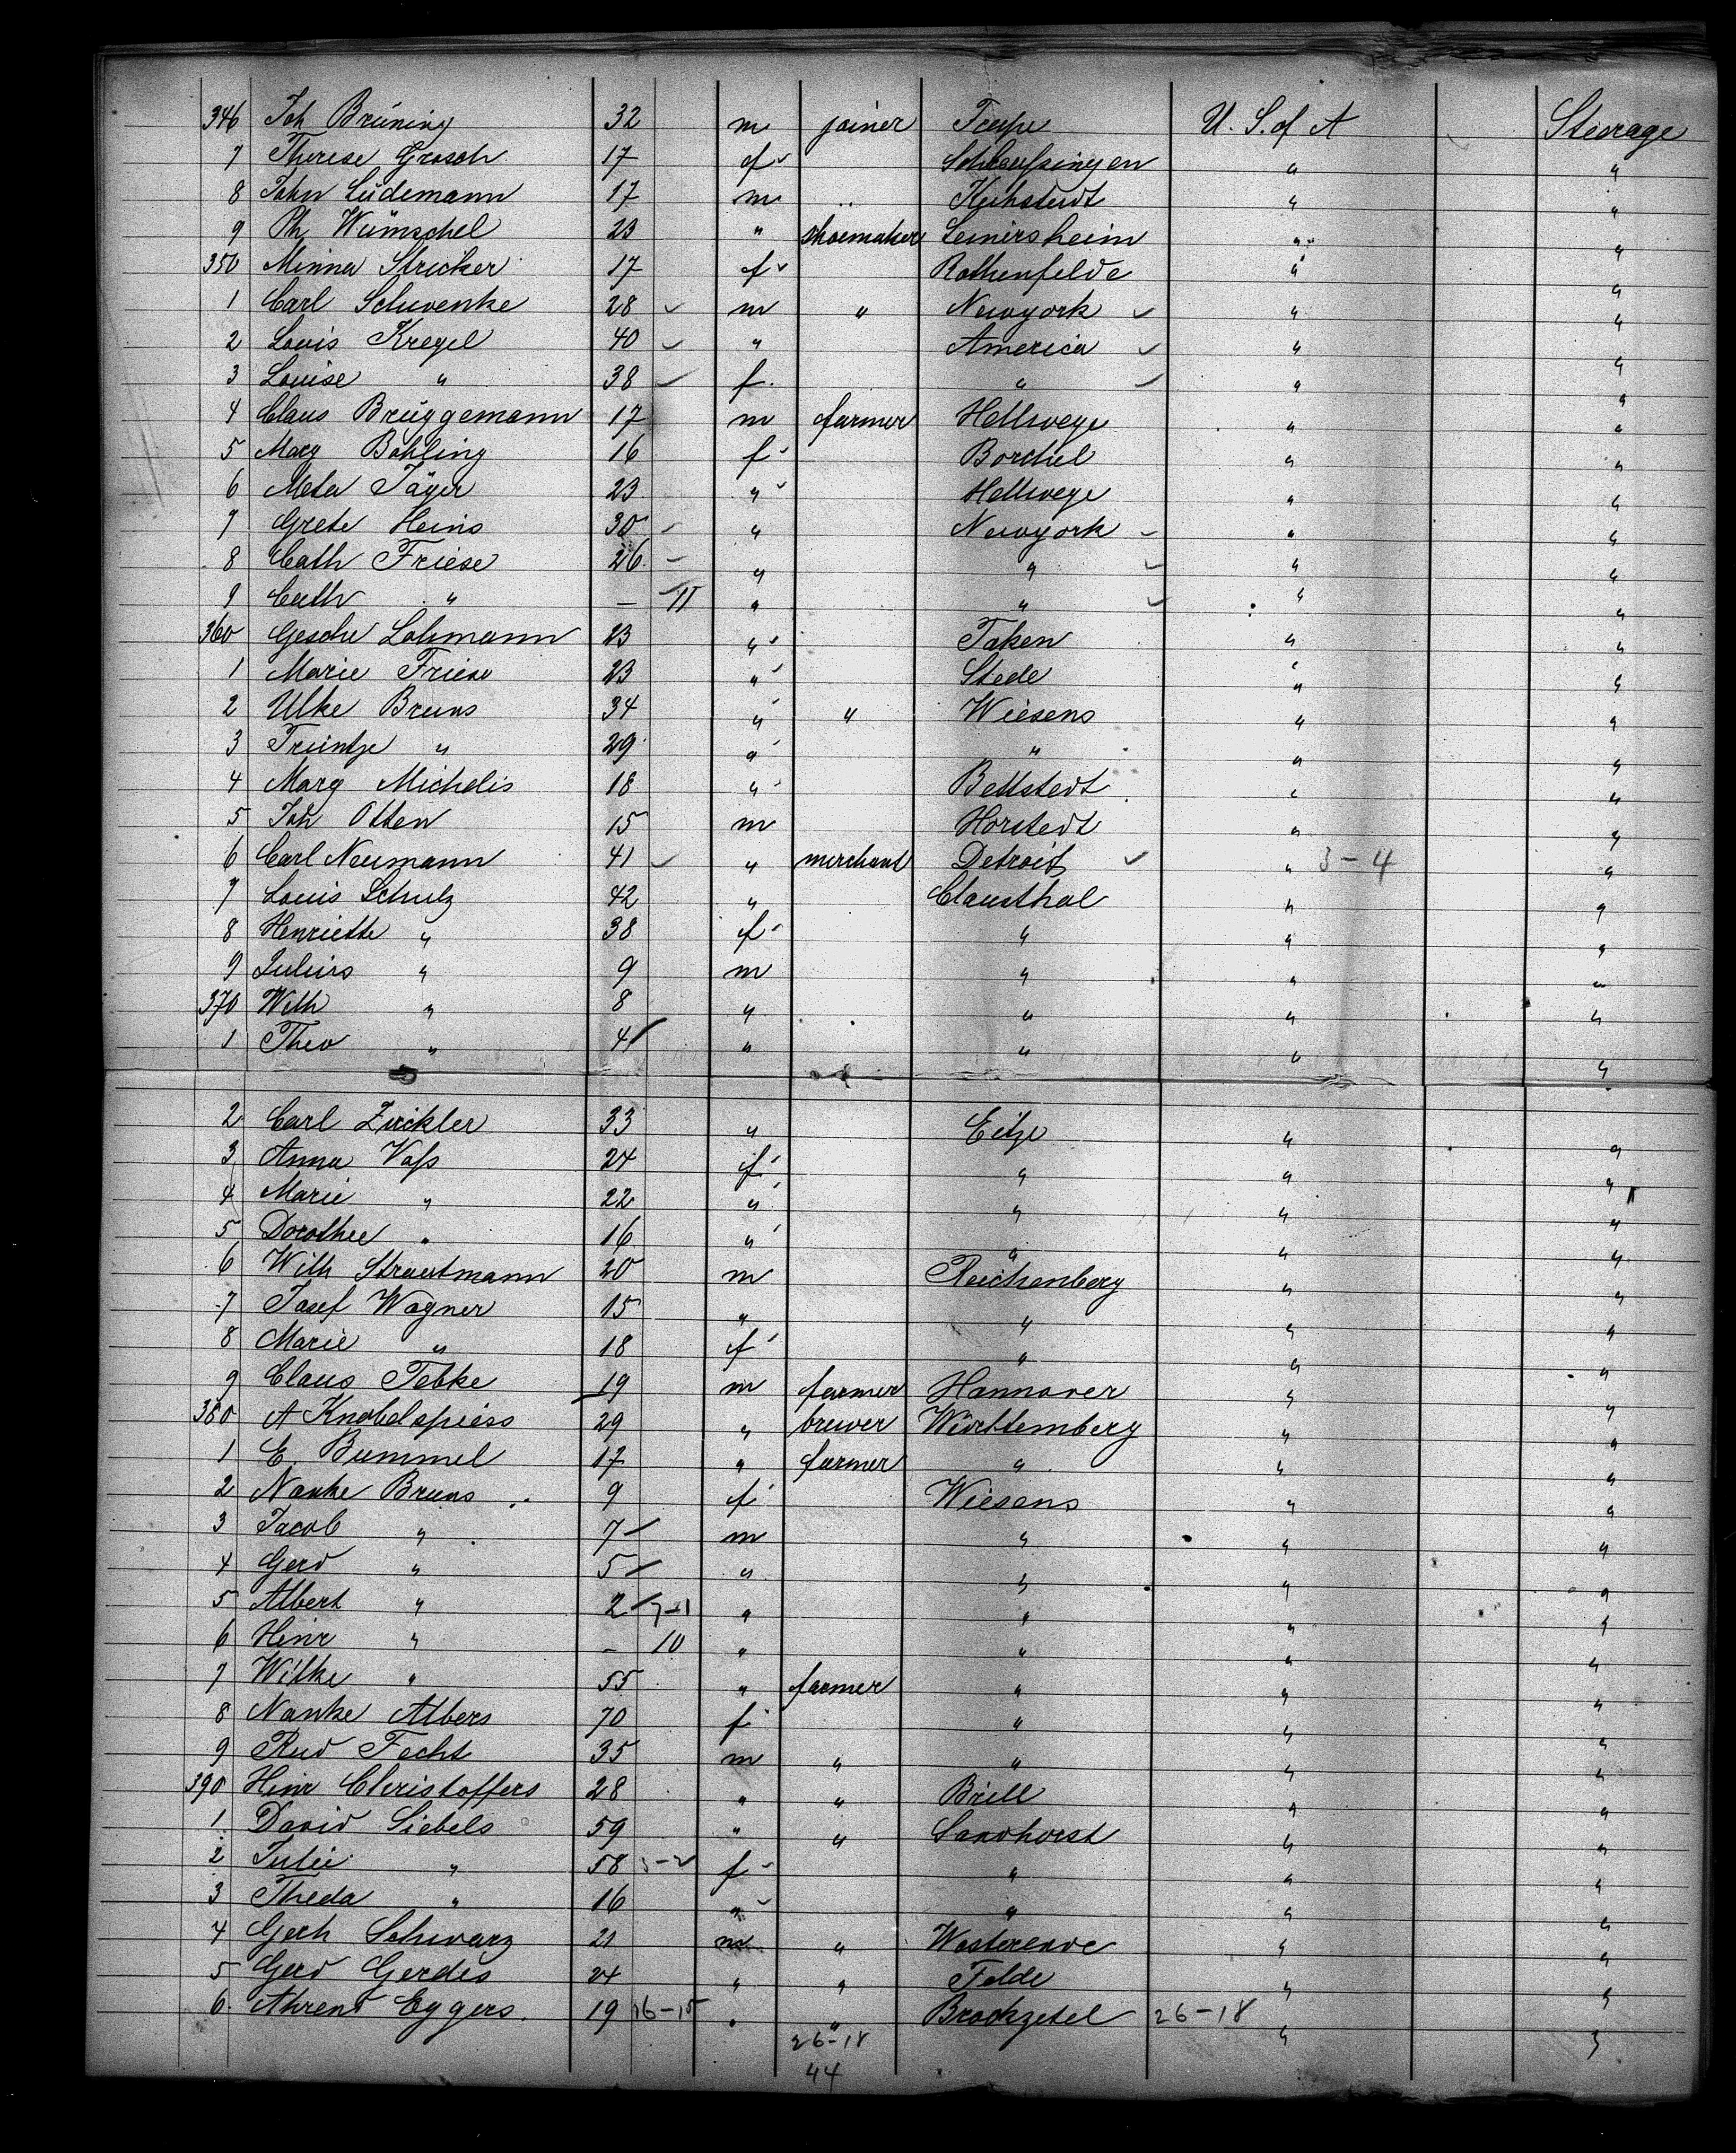 346 Joh Brüning 32 m joiner U. S. of A Steerage
7 Therese Grosch 17 f " "
8 John Lüdemann 17 m " Kuhstedt " "
9 Ph Wümschel 23 " shoemaker Leimersheim " "
350 Minna Stricker 17 f Rothenfelde " "
1 Carl Schwenke 28 m " Newyork " "
2 Louis Kregel 40 " America " "
3 Louise " 38 f " " "
4 Claus Brüggemann 17 m farmer Hellwege " "
5 Marg Bohling 16 f Borchel " "
6 Meta Jäger 23 " Hellwege " "
7 Grete Heins 30 " Newyork " "
8 Cath Friese 26 " " " "
9 Cath " — 11 " " " "
360 Gesche Lohmann 23 " Taken " "
1 Marie Friese 23 " Stede " "
2 Ulke Bruns 34 " " Wiesens " "
3 Trientje " 29 " " " "
4 Marg Michelis 18 " Bellstedt " "
5 Joh Otten 15 m Horstedt " "
6 Carl Neumann 41 " merchant Detroit " 3-4 "
7 Louis Schulz 42 " Clausthal " "
8 Henriette " 38 f " " "
9 Julius " 9 m " " "
370 Wilh " 8 " " " "
1 Theo " 4 " " " "
2 Carl Zuckler 33 " Eitze " "
3 Anna Voß 24 f " " "
4 Marie " 22 " " " "
5 Dorothee " 16 " " " "
6 Wilh Strautmann 20 m Reichenberg " "
7 Josef Wagner 15 " " " "
8 Marie " 18 f " " "
9 Claus Tebke 19 m farmer Hannover " "
380 A Knobelspiess 29 " brewer Württemberg " "
1 E. Bummel 17 " farmer " " "
2 Nanke Bruns 9 f Wiesens " "
3 Jacob " 7 m " " "
4 Gerd " 5 " " " "
5 Albert " 2 7-11 " " " "
6 Hinr " — 10 " " " "
7 Wilke " 55 " farmer " " "
8 Nanke Albers 70 f " " "
9 Rud Fecht 35 m " " " "
390 Hinr Christoffers 28 " " Brill " "
1 David Siebels 59 " " Sandhorst " "
2 Julie " 58 3-2 f " " "
3 Theda " 16 " " " "
4 Gerh Schwarz 21 m " Westerende " "
5 Gerd Gerdes 24 " " Felde " "
6 Ahrend Eggers 19 16-15 " " Brockzetel 26-18 " "
26-18
44